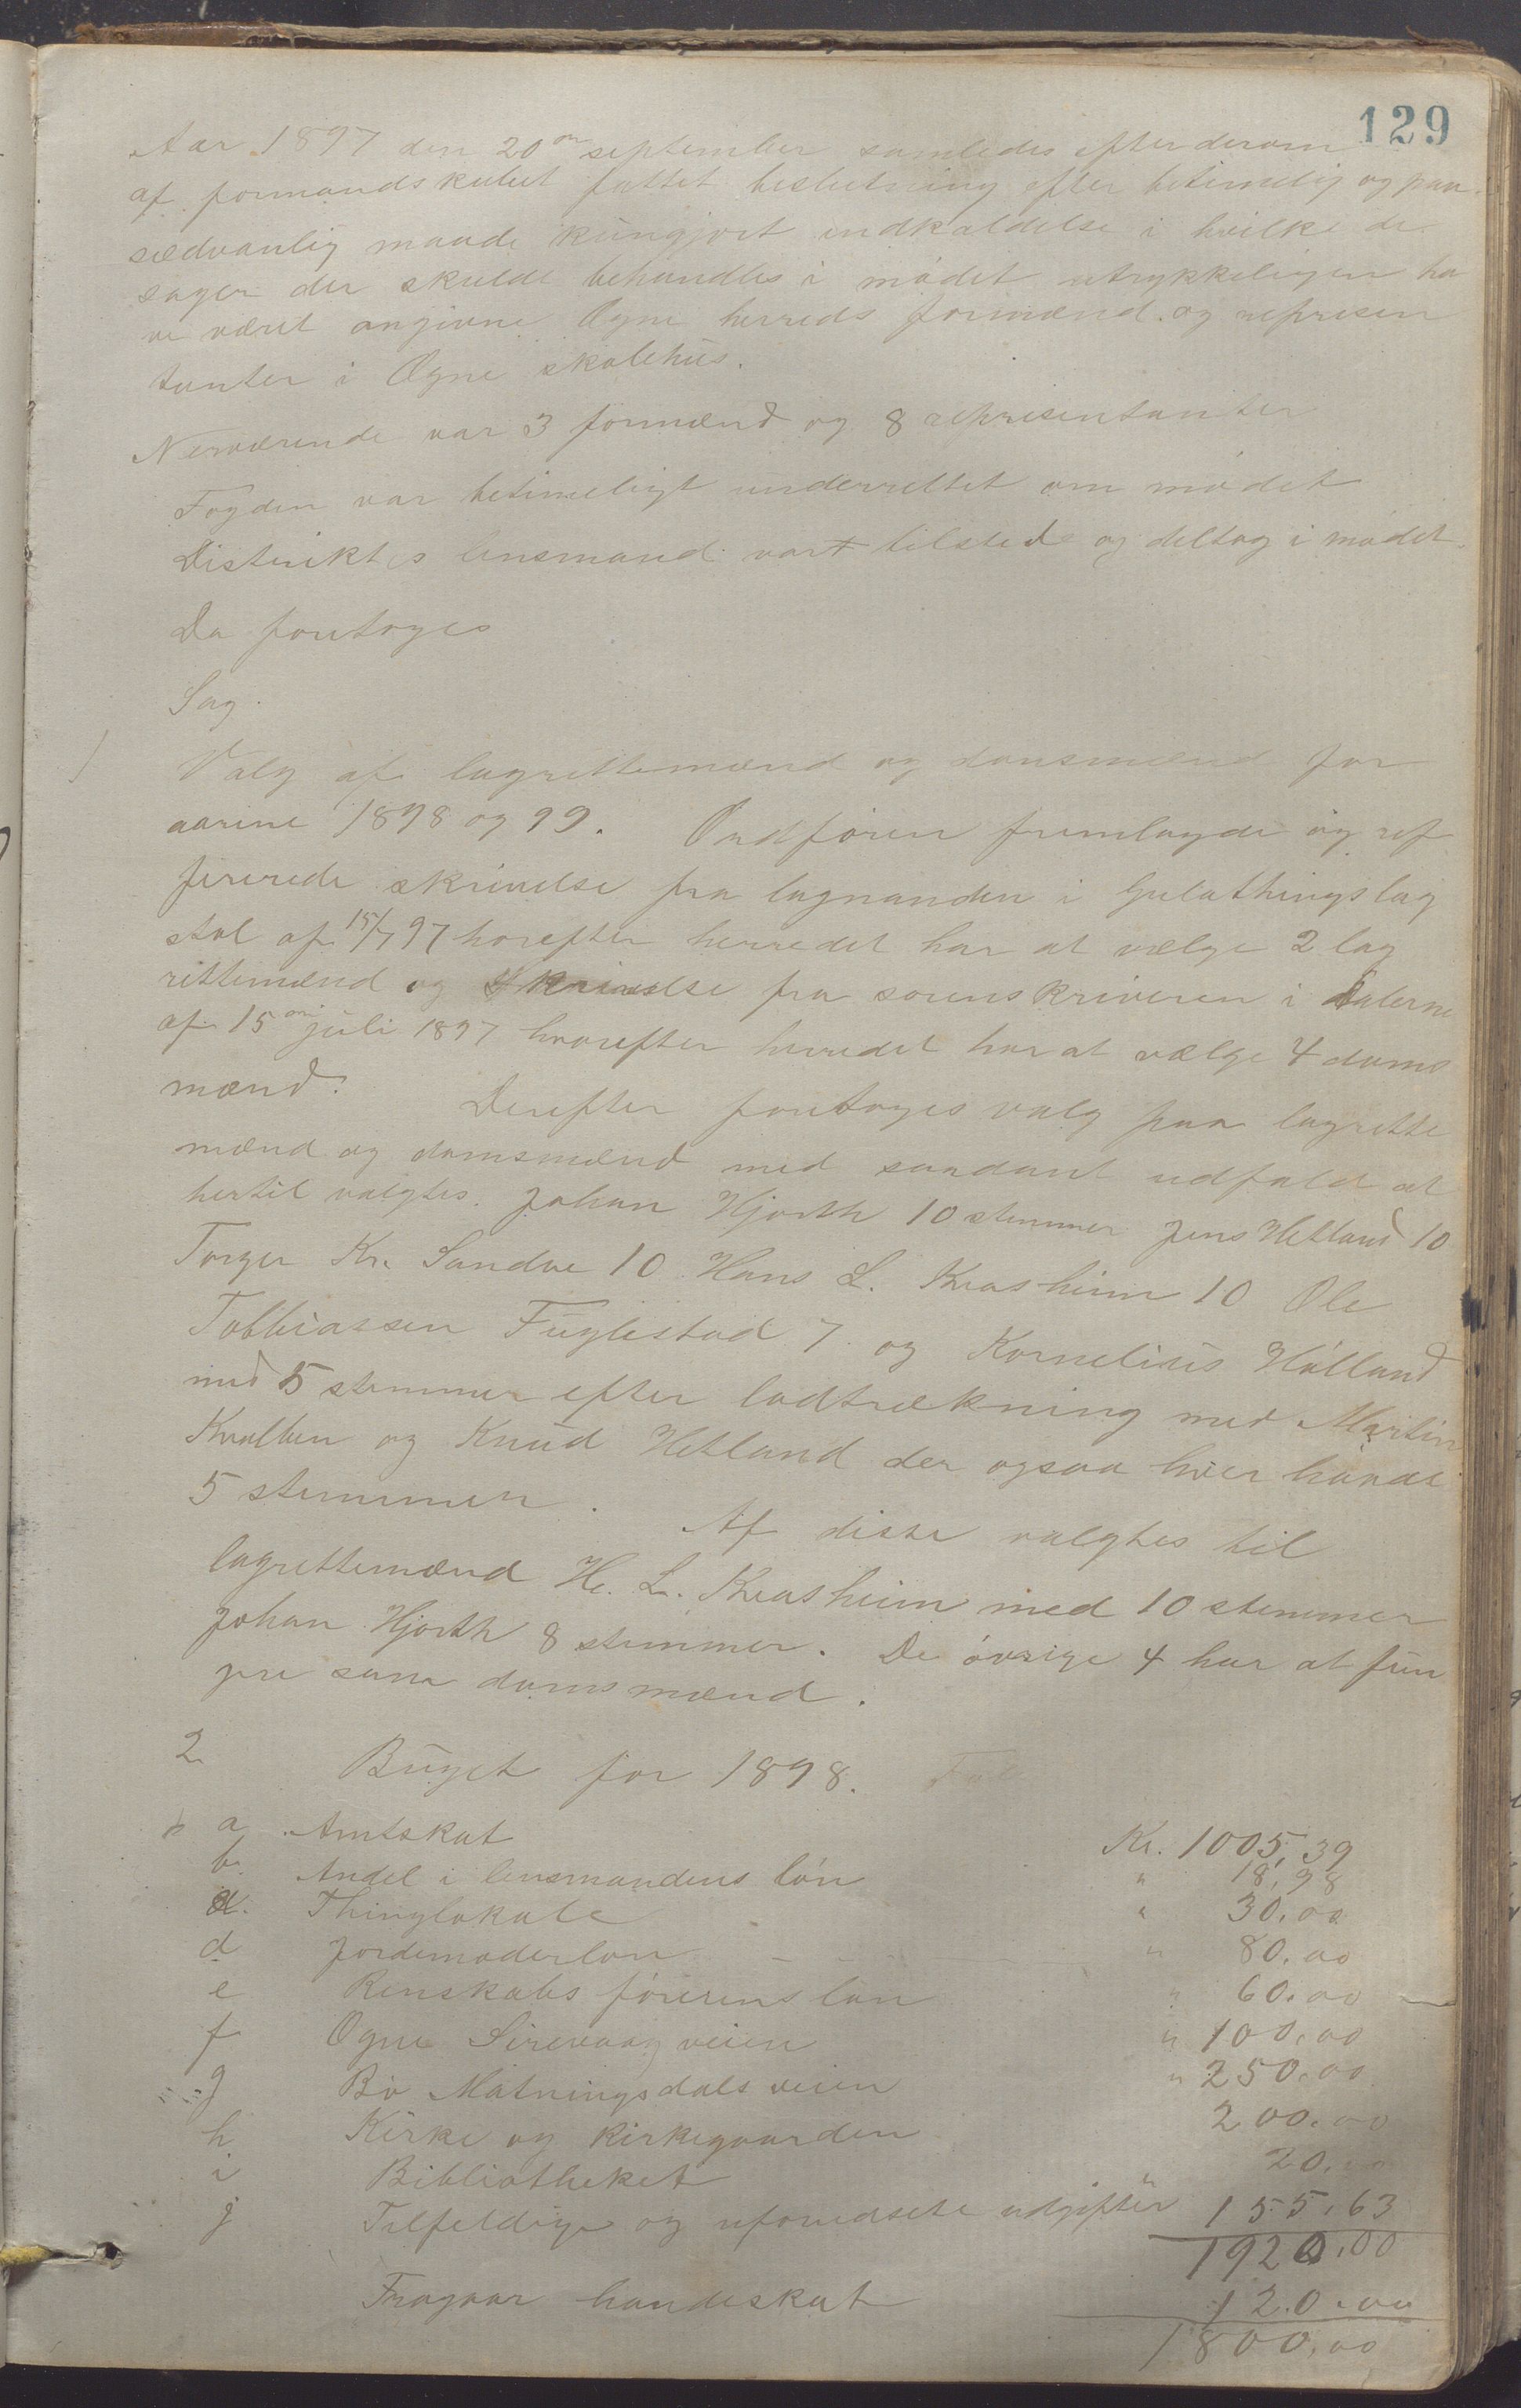 129
Aar 1897 den 20de september samledes efter derom
af formandskabet fattet beslutning efter betimelig og paa
sædvanlig maade kungjort indkaldelse i hvilke de
sager der skulde behandles i mødet utrykkeligen ha
ve været angivne Ogne herreds formænd og represen
tanter i Ogne skolehus.
Nerværende var 3 formænd og 8 representanter
Fogden var betimeligt underrettet om mødet
Distriktes lensmand var tilstede og deltog i mødet.
Da foretoges
Sag.
1 Valg af lagrettemænd og domsmænd for
aarene 1898 og 99. Ordføren fremlagde og ref
fererede skrivelse fra lagmanden i Gulathingslag
stol af 15/7 97 horefter herredet har at vælge 2 lag
rettemænd og skrivelse fra sorenskriveren i Dalerne
af 15de juli 1897 hvorefter herredet har at vælge 4 doms
mænd. Derefter foretoges valg paa lagrette
mænd og domsmænd med saadant udfald at
hertil valgtes. Johan Hjorth 10 stemmer Jens Hetland 10
Torger Kr. Sandve 10 Hans L. Kvasheim 10 Ole
Tobbiassen Fuglestad 7 og Kornelius Hålland
med 5 stemmer efter lodtrækning med Martin
Kvalben og Knud Hetland der ogsaa hver havde
5 stemmer. Af disse valgtes til
lagrettemænd H. L. Kvasheim med 10 stemmer
Johan Hjorth 8 stemmer. De øvrige 4 har at fun
gre som domsmænd.
2 Buget for 1898.
a Amtskat Kr. 1005,39
b. Andel i lensmandens løn " 18,98
c. Thinglokale " 30.00
d Jordemoderløn " 80.00
e Renskabsførerens løn " 60.00
f Ogne Sirevaag veien " 100.00
g Bø Matningsdals veien " 250.00
h Kirke og kirkegaarden 200.00
i Bibliotheket 20.00
j Tilfeldige og uforudsete udgifter 155.63
1920.00
Fragaar hundeskat 120.00
1800.00